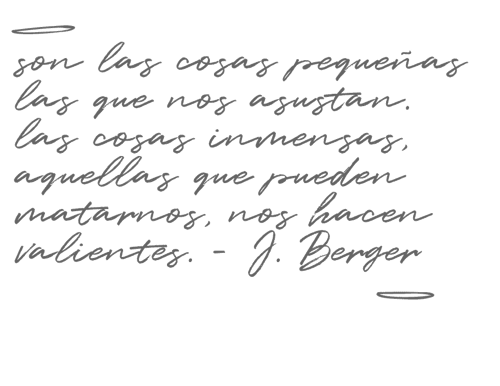 son las cosas pequeñas
las que nos asustan.
las cosas inmensas,
aquellas que pueden
matarnos, nos hacen
valientes. - J. Berger